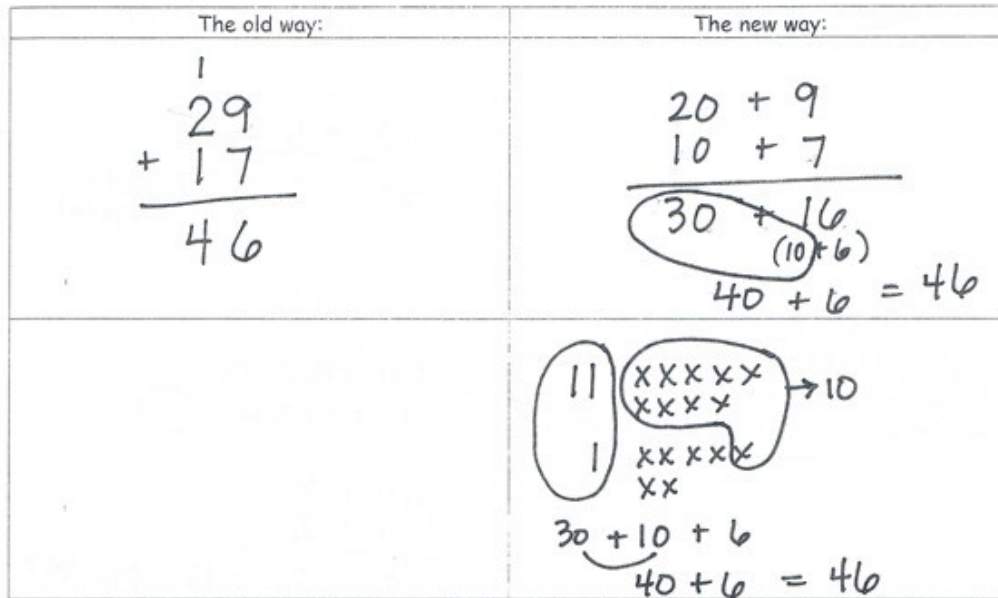 The old way:
1
29
+ 17
46
The new way:
20 + 9
10 + 7
30 + 16
(10 + 6)
40 + 6 = 46
11 xxxxx → 10
xxxx
1 xxxxx
xx
30 + 10 + 6
40 + 6 = 46